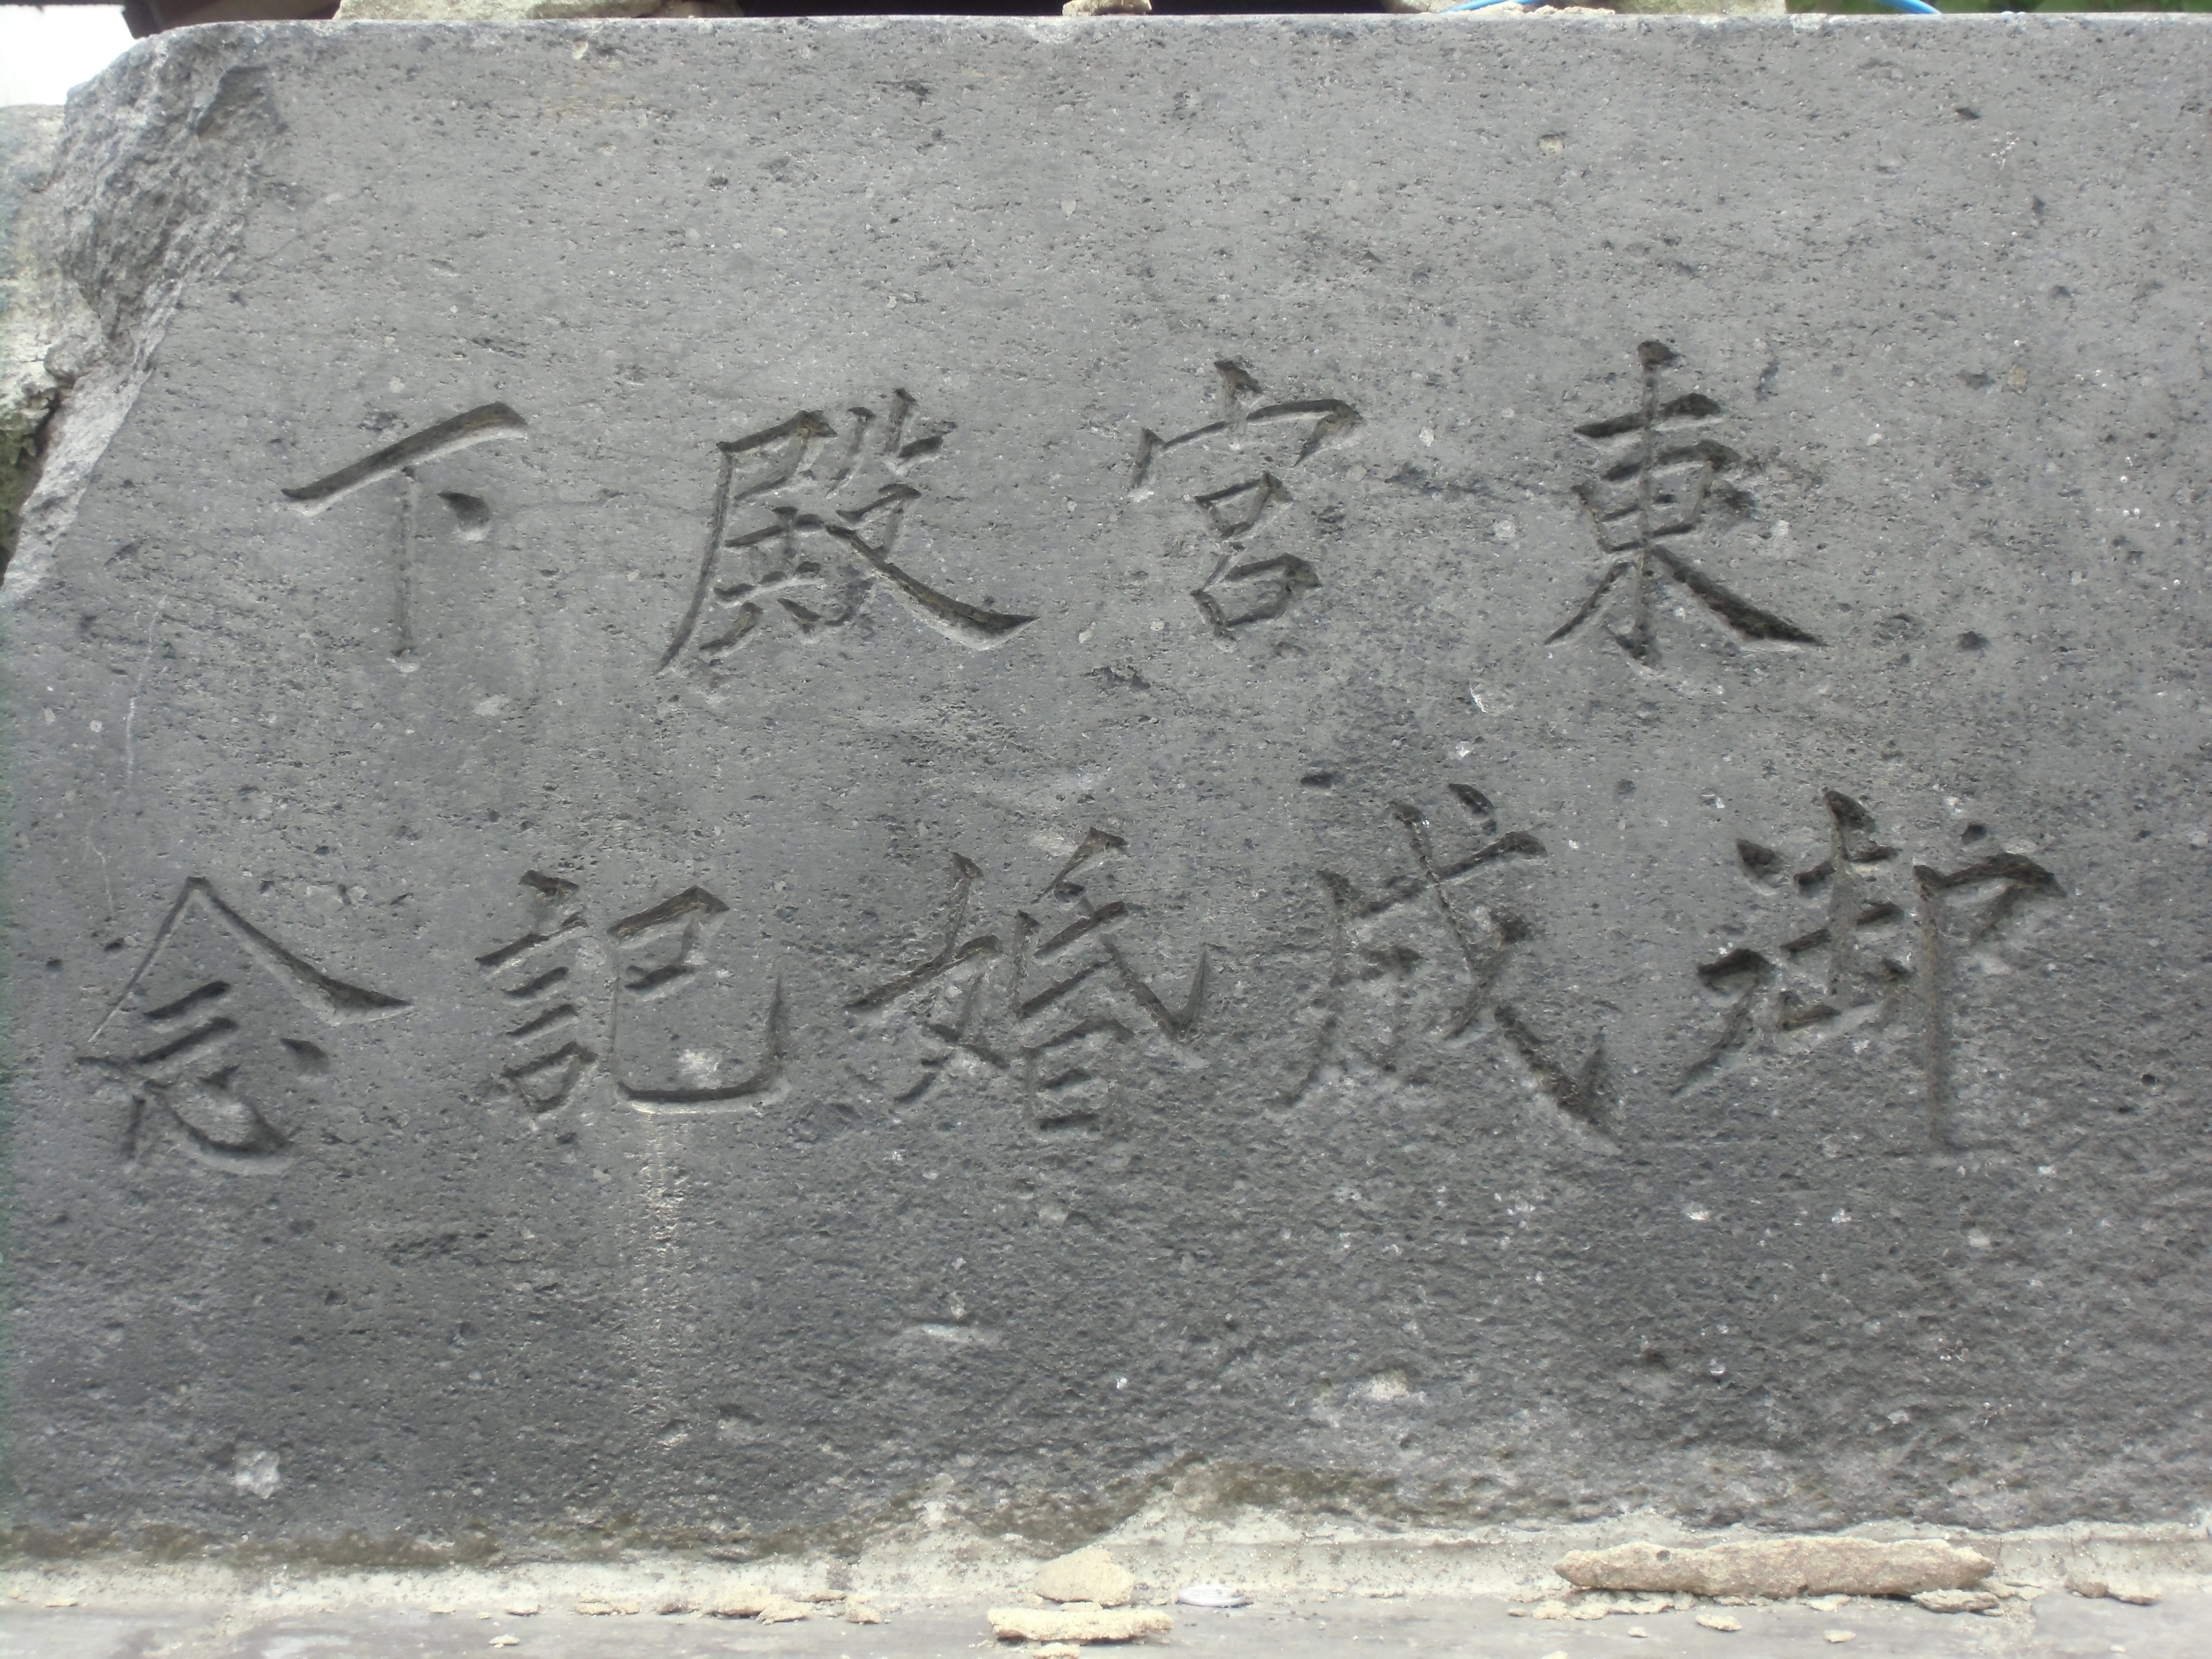 東宮殿下
御成婚記念